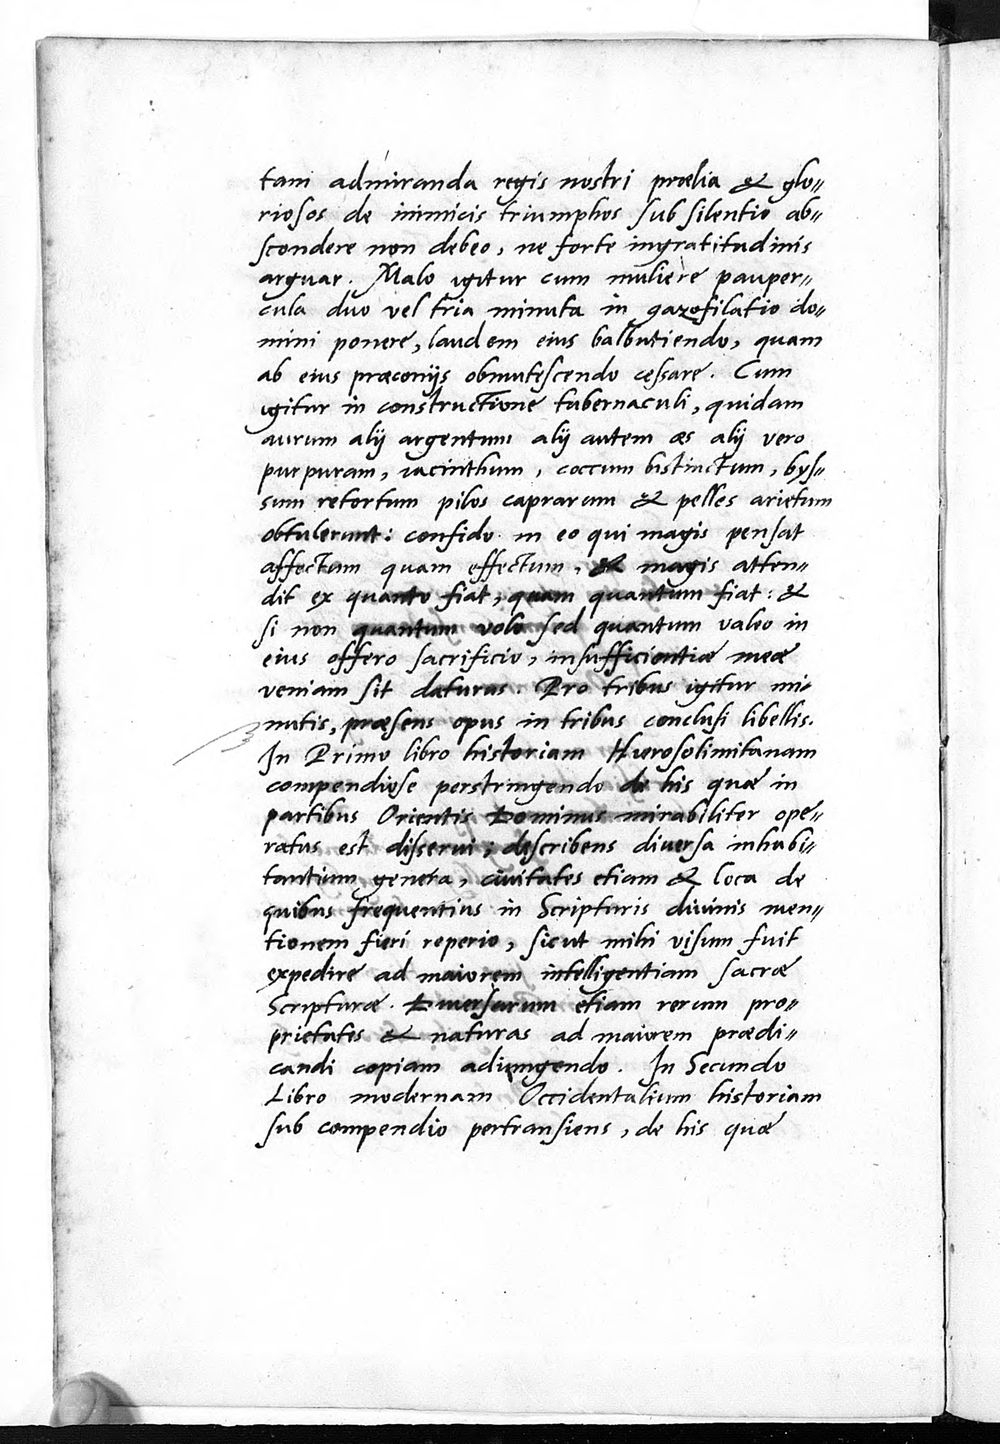 tam admiranda regis nostri prælia & glo=
riosos de inimicis triumphos sub silentio ab=
scondere non debeo, ne forte ingratitudinis
arguar. Malo igitur cum muliere pauper=
cula duo vel tria minuta in gazofilatio do=
mini ponere, laudem eius balbutiendo, quam
ab eius præconijs obmutescendo cessare. Cum
igitur in constructione tabernaculi, quidam
aurum alij argentum alij autem æs alij vero
purpuram, iacinthum, coccum bistinctum, bys=
sum retortum pilos caprarum & pelles arietum
obtulerunt: confido in eo qui magis pensat
affectum quam effectum, & magis atten=
dit ex quanto fiat, quam quantum fiat: &
si non quantum volo sed quantum valeo in
eius offero sacrificio, insufficientiæ meæ
veniam sit daturus. Pro tribus igitur mi=
nutis, præsens opus in tribus conclusi libellis.
In Primo libro historiam Hierosolimitanam
compendiose perstringendo de his quæ in
partibus Orientis Dominus mirabiliter ope=
ratus est disserui; describens diversa inhabi=
tantium genera, civitates etiam & loca de
quibus frequentius in Scripturis divinis men=
tionem fieri reperio, sicut mihi visum fuit
expedire ad maiorem intelligentiam sacræ
Scripturæ. Diversarum etiam rerum pro=
prietatis & naturas ad maiorem prædi=
candi copiam adiungendo. In Secundo
Libro modernam Occidentalium historiam
sub compendio pertransiens, de his quæ